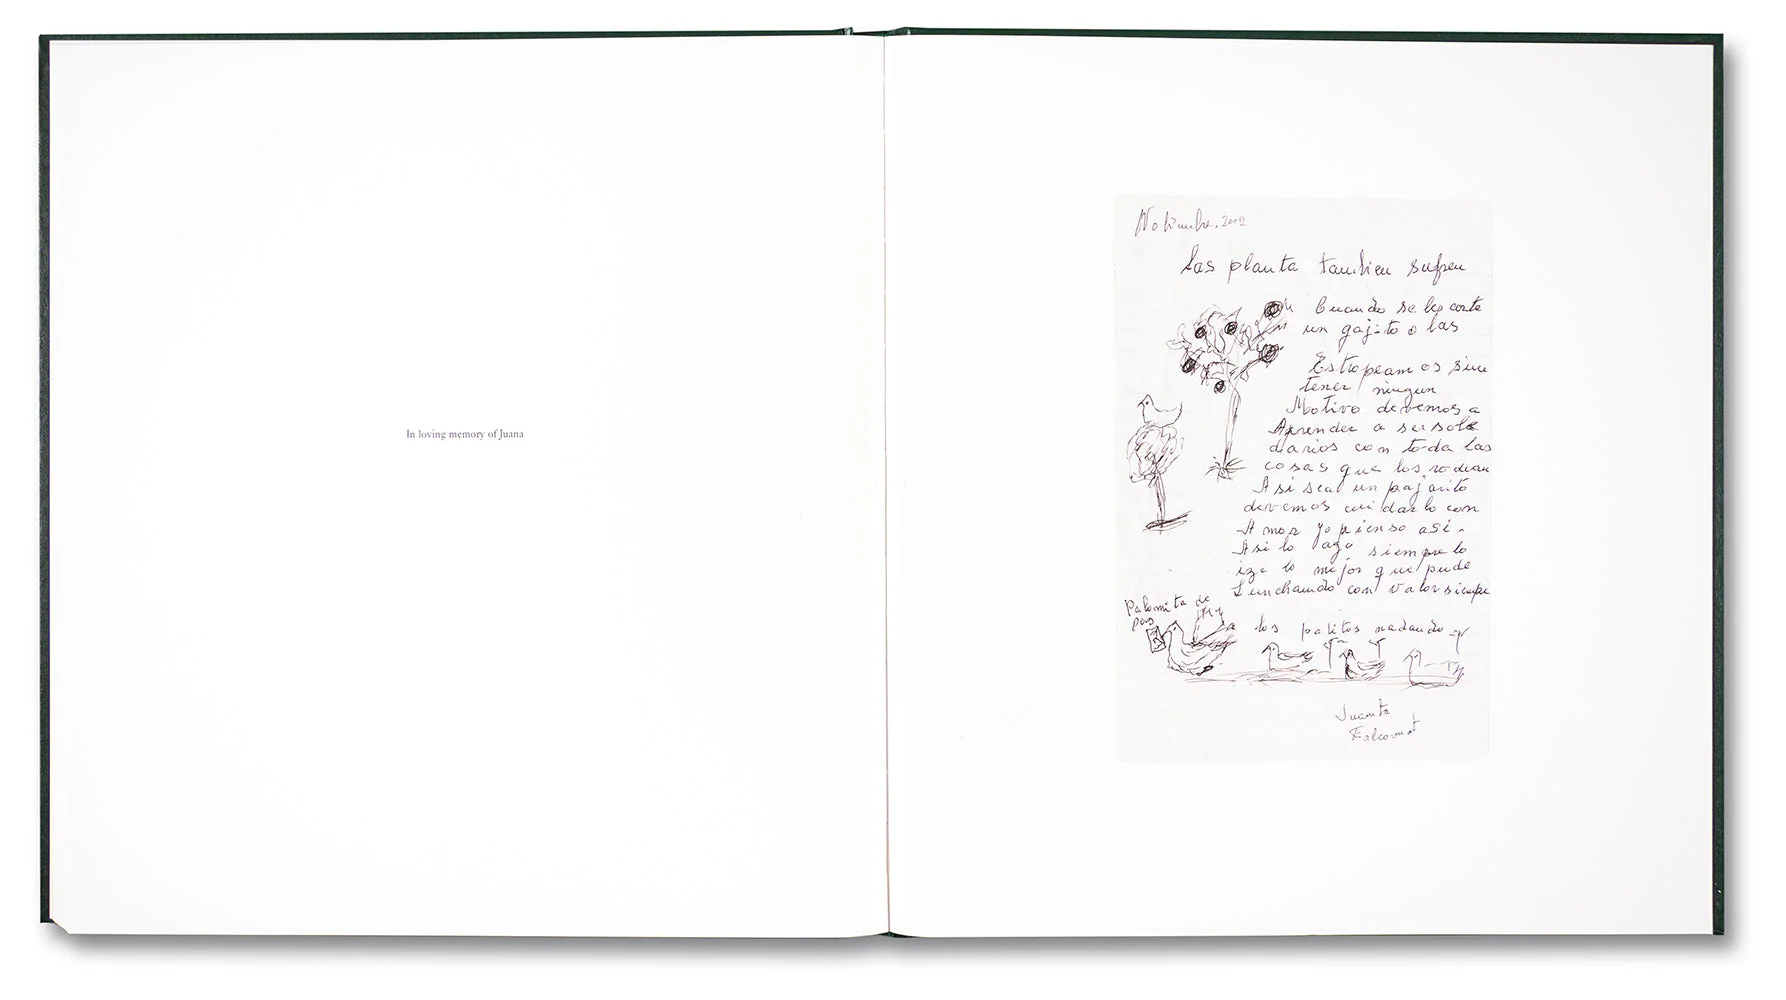 In loving memory of Juana
Nobiembre. 2002
las planta tambien sufren
Cuando se les corta
un gajito o las
Estropeamos sin
tener ningun
Motivo devemos a
Aprender a ser soli
darios con toda las
cosas que los rodean
Asi sea un pajarito
devemos cuidarlo con
Amor yo pienso asi.
Asi lo ago siempre lo
ize lo mejor que pude
Lunchando con valor siempre
Palomita de
pas
los patitos nadando
Juanita